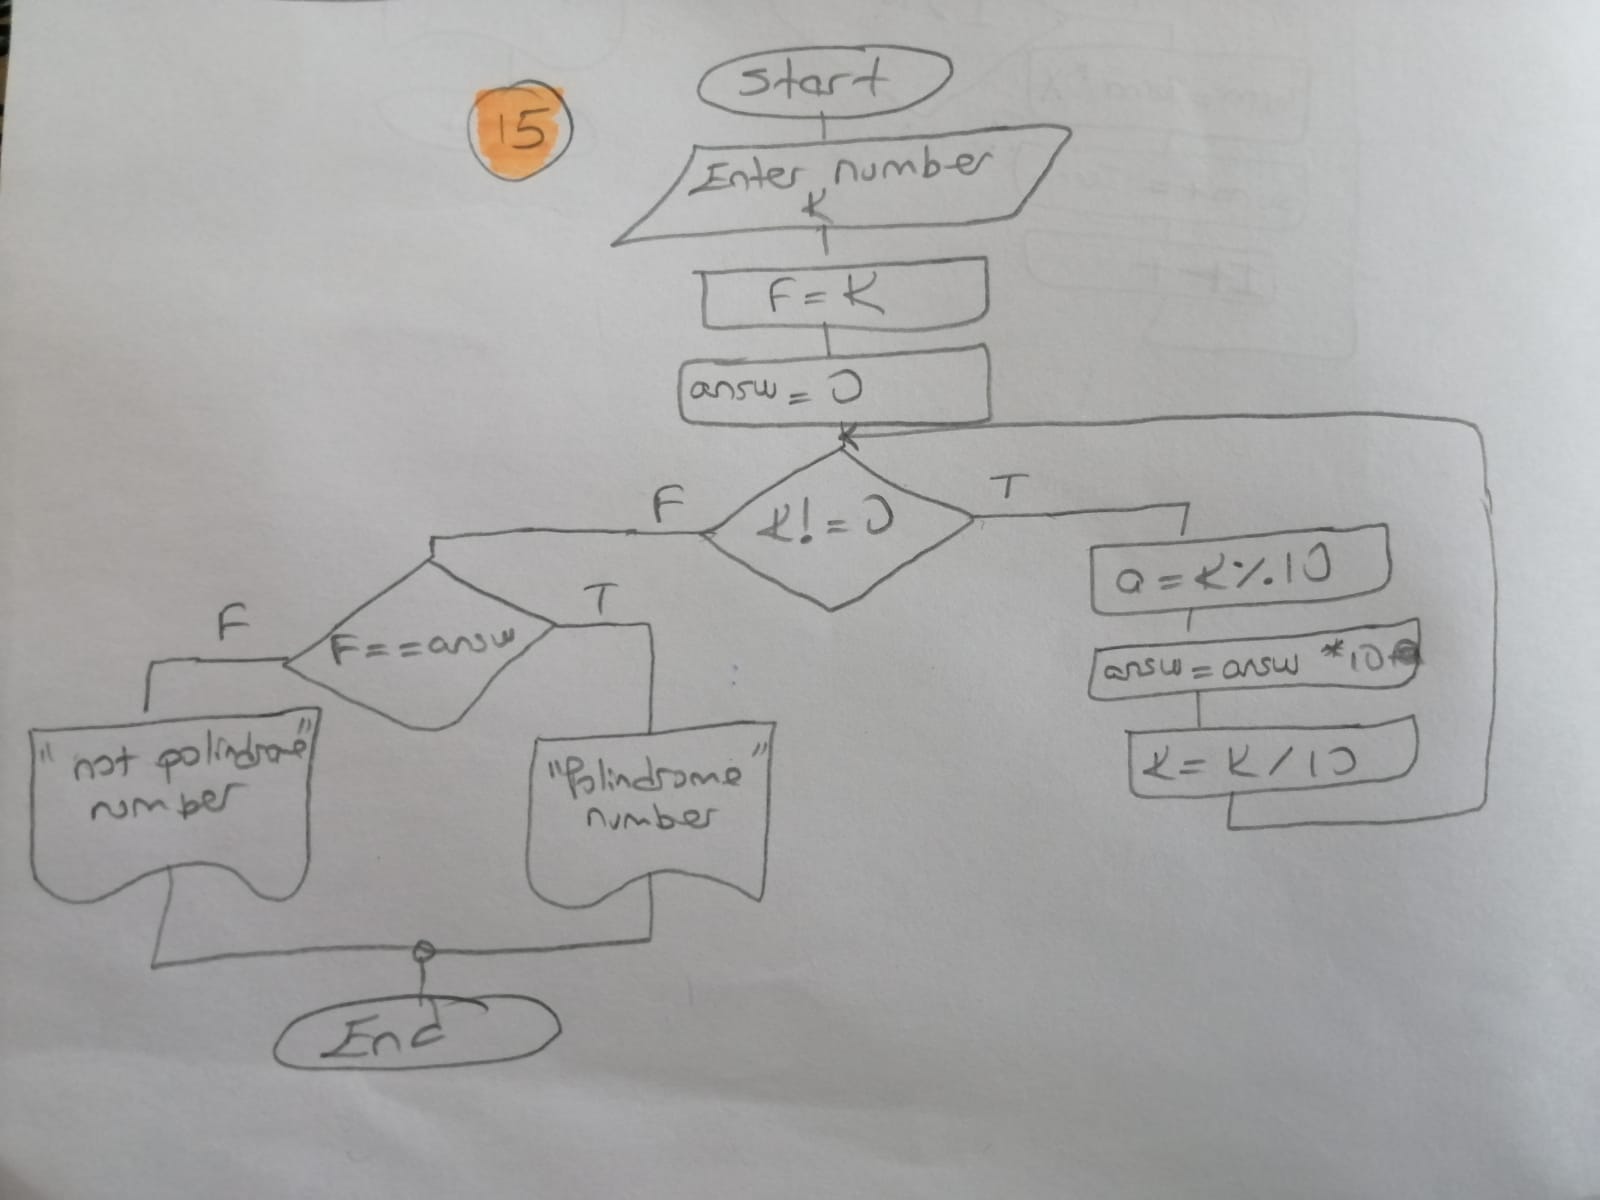 15
Start
Enter number
K
F = K
answ = 0
K! = 0
F
T
a = K%10
answ = answ *10+
K = K/10
F == answ
F
T
" not polindrome"
number
"Polindrome"
number
End